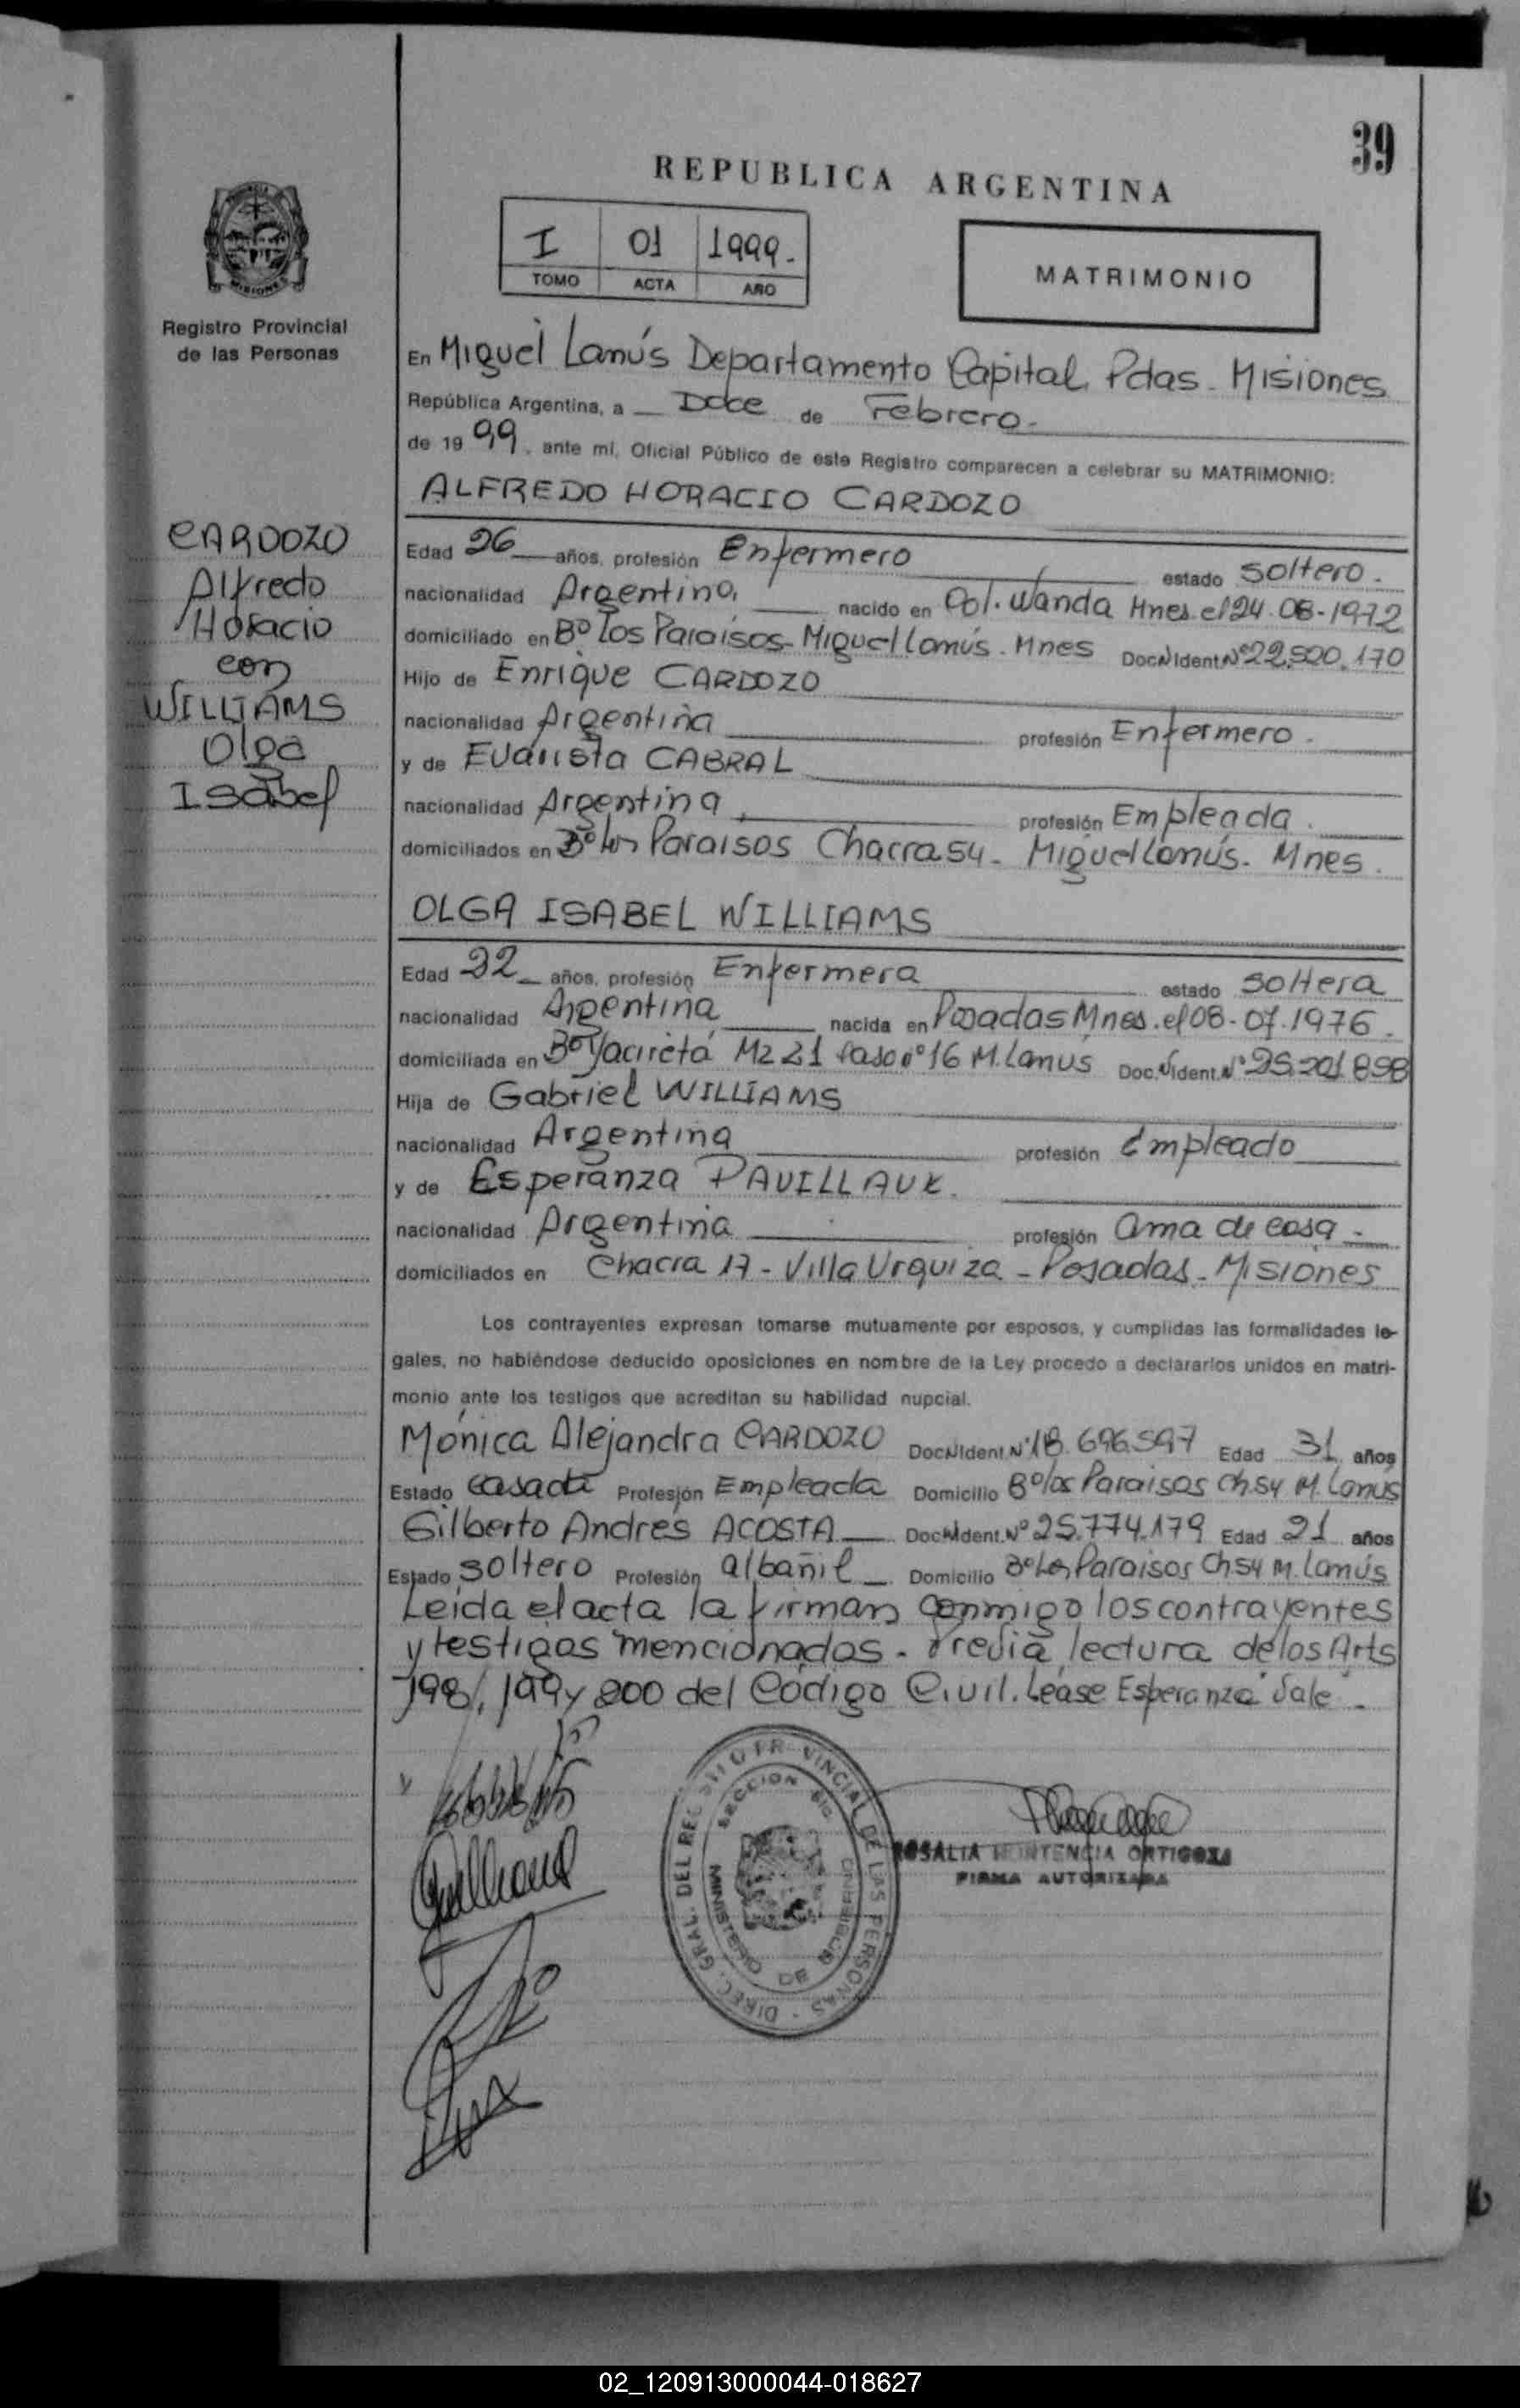 39
REPUBLICA ARGENTINA
I 01 1999.
TOMO ACTA AÑO
MATRIMONIO
MISIONES
Registro Provincial
de las Personas
En Miguel Lanús Departamento Capital, Pdas - Misiones
República Argentina, a Doce de Febrero.
de 1999, ante mí, Oficial Público de este Registro comparecen a celebrar su MATRIMONIO:
ALFREDO HORACIO CARDOZO
CARDOZO
Alfredo
Horacio
con
WILLIAMS
Olga
Isabel
Edad 26 años, profesión Enfermero estado Soltero.
nacionalidad Argentina, nacido en Col. Wanda Mnes. el 24-08-1972
domiciliado en Bº Los Paraísos - Miguel Lanús. Mnes Doc.N.Ident.Nº 22.500.170
Hijo de Enrique CARDOZO
nacionalidad Argentina profesión Enfermero.
y de Evarista CABRAL
nacionalidad Argentina, profesión Empleada.
domiciliados en Bº Los Paraisos Chacra 54 - Miguel Lanús. Mnes.
OLGA ISABEL WILLIAMS
Edad 22 años, profesión Enfermera estado Soltera
nacionalidad Argentina nacida en Posadas Mnes. el 08-07-1976.
domiciliada en Bº Yaciretá Mz 21 Caso nº 16 M. Lanus Doc.N.Ident.Nº 25.201.898
Hija de Gabriel WILLIAMS
nacionalidad Argentina profesión Empleado
y de Esperanza PAVILLAUK.
nacionalidad Argentina profesión ama de casa -
domiciliados en Chacra 17 - Villa Urquiza - Posadas - Misiones
Los contrayentes expresan tomarse mutuamente por esposos, y cumplidas las formalidades le-
gales, no habiéndose deducido oposiciones en nombre de la Ley procedo a declararlos unidos en matri-
monio ante los testigos que acreditan su habilidad nupcial.
Mónica Alejandra CARDOZO Doc.N.Ident.Nº 18.696.597 Edad 31 años
Estado casada Profesión Empleada Domicilio Bº los Paraisos Ch.54 M. Lanús
Gilberto Andres ACOSTA Doc.N.Ident.Nº 25.774.179 Edad 21 años
Estado Soltero Profesión albañil Domicilio Bº Los Paraisos Ch.54 M. Lanús
Leida el acta la firman conmigo los contrayentes
y testigos mencionados. Previa lectura de los Arts
198, 199 y 200 del Código Civil. Lease "Esperanza" Vale".
DIREC. GRAL. DEL REGISTRO PROVINCIAL DE LAS PERSONAS
SECCION
MINISTERIO DE GOBIERNO
ROSALIA HORTENCIA ORTIGOZA
FIRMA AUTORIZADA
02_120913000044-018627